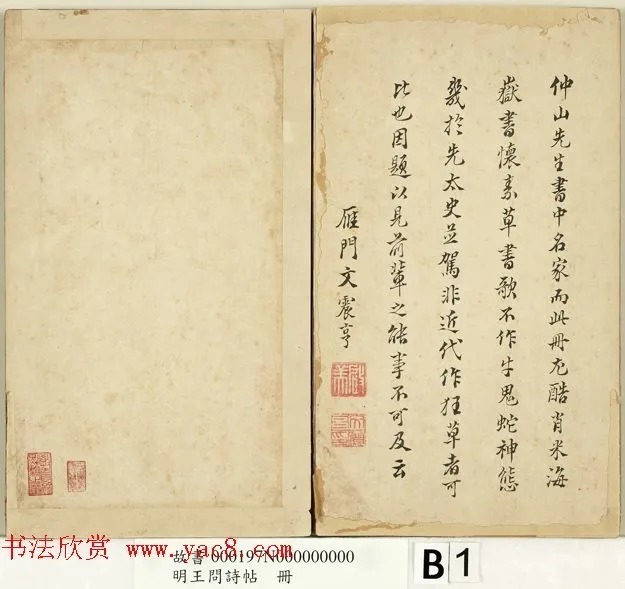 仲山先生書中名家而此冊尤酷肖米海
嶽書懷素草書歌不作牛鬼蛇神態
幾於先太史並駕非近代作狂草者可
比也因題以見前輩之能事不可及云
雁門文震亨
书法欣赏 www.yac8.com
故書 000197N000000000
明王問詩帖 冊
B 1